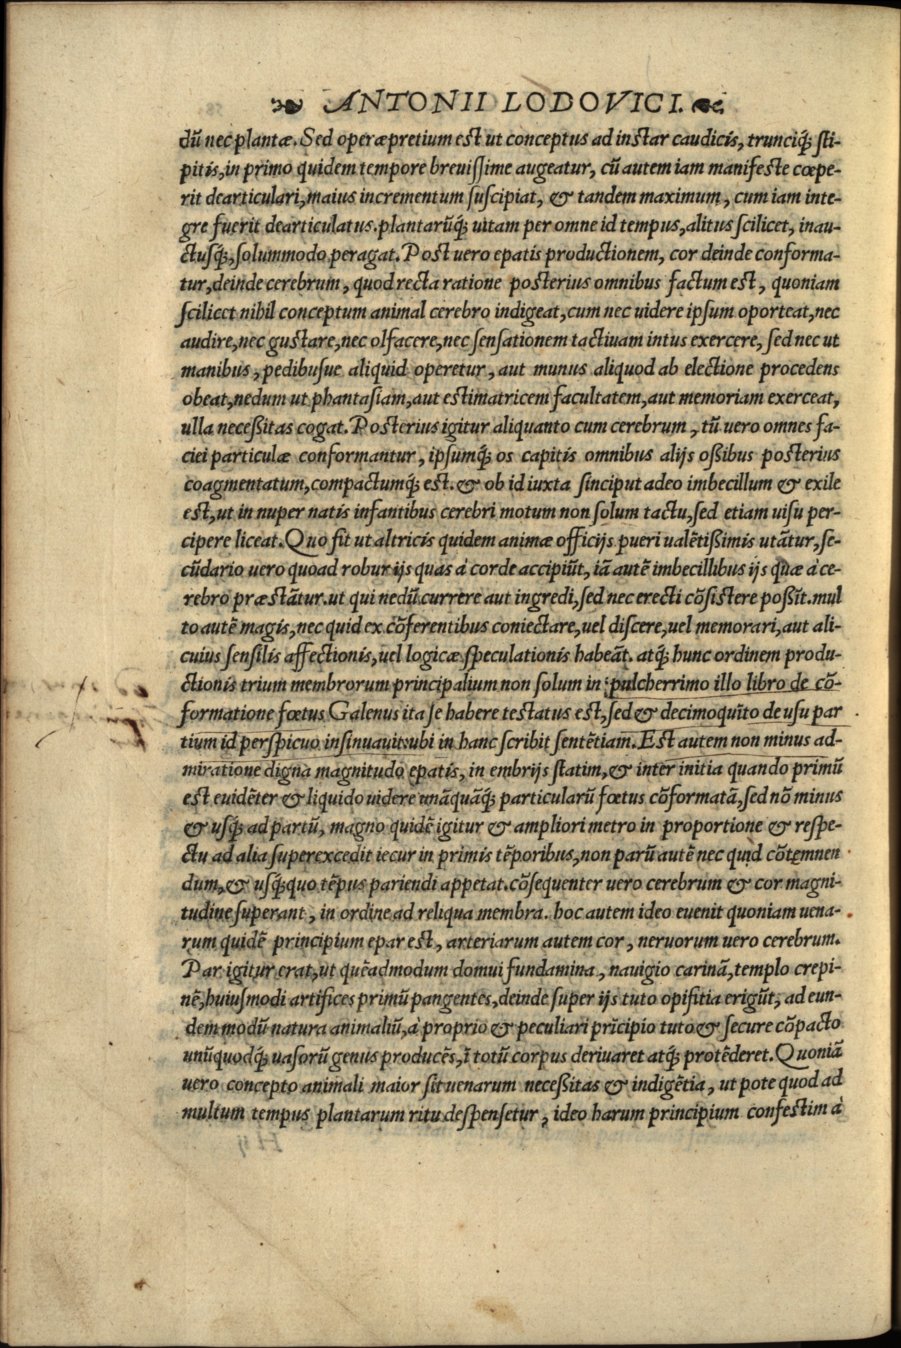 ANTONII LODOVICI.
dũ nec plantæ. Sed operæpretium est ut conceptus ad instar caudicis, trunciq́; sti-
pitis, in primo quidem tempore breuissime augeatur, cũ autem iam manifeste cœpe-
rit dearticulari, maius incrementum suscipiat, & tandem maximum, cum iam inte-
gre fuerit dearticulatus. plantarũq́; uitam per omne id tempus, alitus scilicet, inau-
ctusq́;, solummodo peragat. Post uero epatis productionem, cor deinde conforma-
tur, deinde cerebrum, quod recta ratione posterius omnibus factum est, quoniam
scilicet nihil conceptum animal cerebro indigeat, cum nec uidere ipsum oporteat, nec
audire, nec gustare, nec olfacere, nec sensationem tactiuam intus exercere, sed nec ut
manibus, pedibusue aliquid operetur, aut munus aliquod ab electione procedens
obeat, nedum ut phantasiam, aut estimatricem facultatem, aut memoriam exerceat,
ulla necessitas cogat. Posterius igitur aliquanto cum cerebrum, tũ uero omnes fa-
ciei particulæ conformantur, ipsumq́; os capitis omnibus alijs ossibus posterius
coagmentatum, compactumq́; est. & ob id iuxta sinciput adeo imbecillum & exile
est, ut in nuper natis infantibus cerebri motum non solum tactu, sed etiam uisu per-
cipere liceat. Quo fit ut altricis quidem animæ officijs pueri ualẽtissimis utãtur, se-
cũdario uero quoad robur ijs quas à corde accipiũt, iã autẽ imbecillibus ijs quæ à ce-
rebro præstãtur. ut qui nedũ currere aut ingredi, sed nec erecti cõsistere possĩt. mul
to autẽ magis, nec quid ex cõferentibus coniectare, uel discere, uel memorari, aut ali-
cuius sensilis affectionis, uel logicæ speculationis habeãt. atq́; hunc ordinem produ-
ctionis trium membrorum principalium non solum in pulcherrimo illo libro de cõ-
formatione fœtus Galenus ita se habere testatus est, sed & decimoquĩto de usu par
tium id perspicuo insinuauit: ubi in hanc scribit sentẽtiam. Est autem non minus ad-
miratione digna magnitudo epatis, in embrijs statim, & inter initia quando primũ
est euidẽter & liquido uidere unãquãq́; particularũ fœtus cõformatã, sed nõ minus
& usq́; ad partũ, magno quidẽ igitur & ampliori metro in proportione & respe-
ctu ad alia superexcedit iecur in primis tẽporibus, non parũ autẽ nec quid cõtemnen
dum, & usq́;quo tẽpus pariendi appetat. cõsequenter uero cerebrum & cor magni-
tudine superant, in ordine ad reliqua membra. hoc autem ideo euenit quoniam uena-
rum quidẽ principium epar est, arteriarum autem cor, neruorum uero cerebrum.
Par igitur erat, ut quẽadmodum domui fundamina, nauigio carinã, templo crepi-
nẽ, huiusmodi artifices primũ pangentes, deinde super ijs tuto opifitia erigũt, ad eun-
dem modũ natura animaliũ, à proprio & peculiari prĩcipio tuto & secure cõpacto
unũquodq́; uasorũ genus producẽs, ĩ totũ corpus deriuaret atq́; protẽderet. Quoniã
uero concepto animali maior sit uenarum necessitas & indigẽtia, ut pote quod ad
multum tempus plantarum ritu despensetur, ideo harum principium confestim à